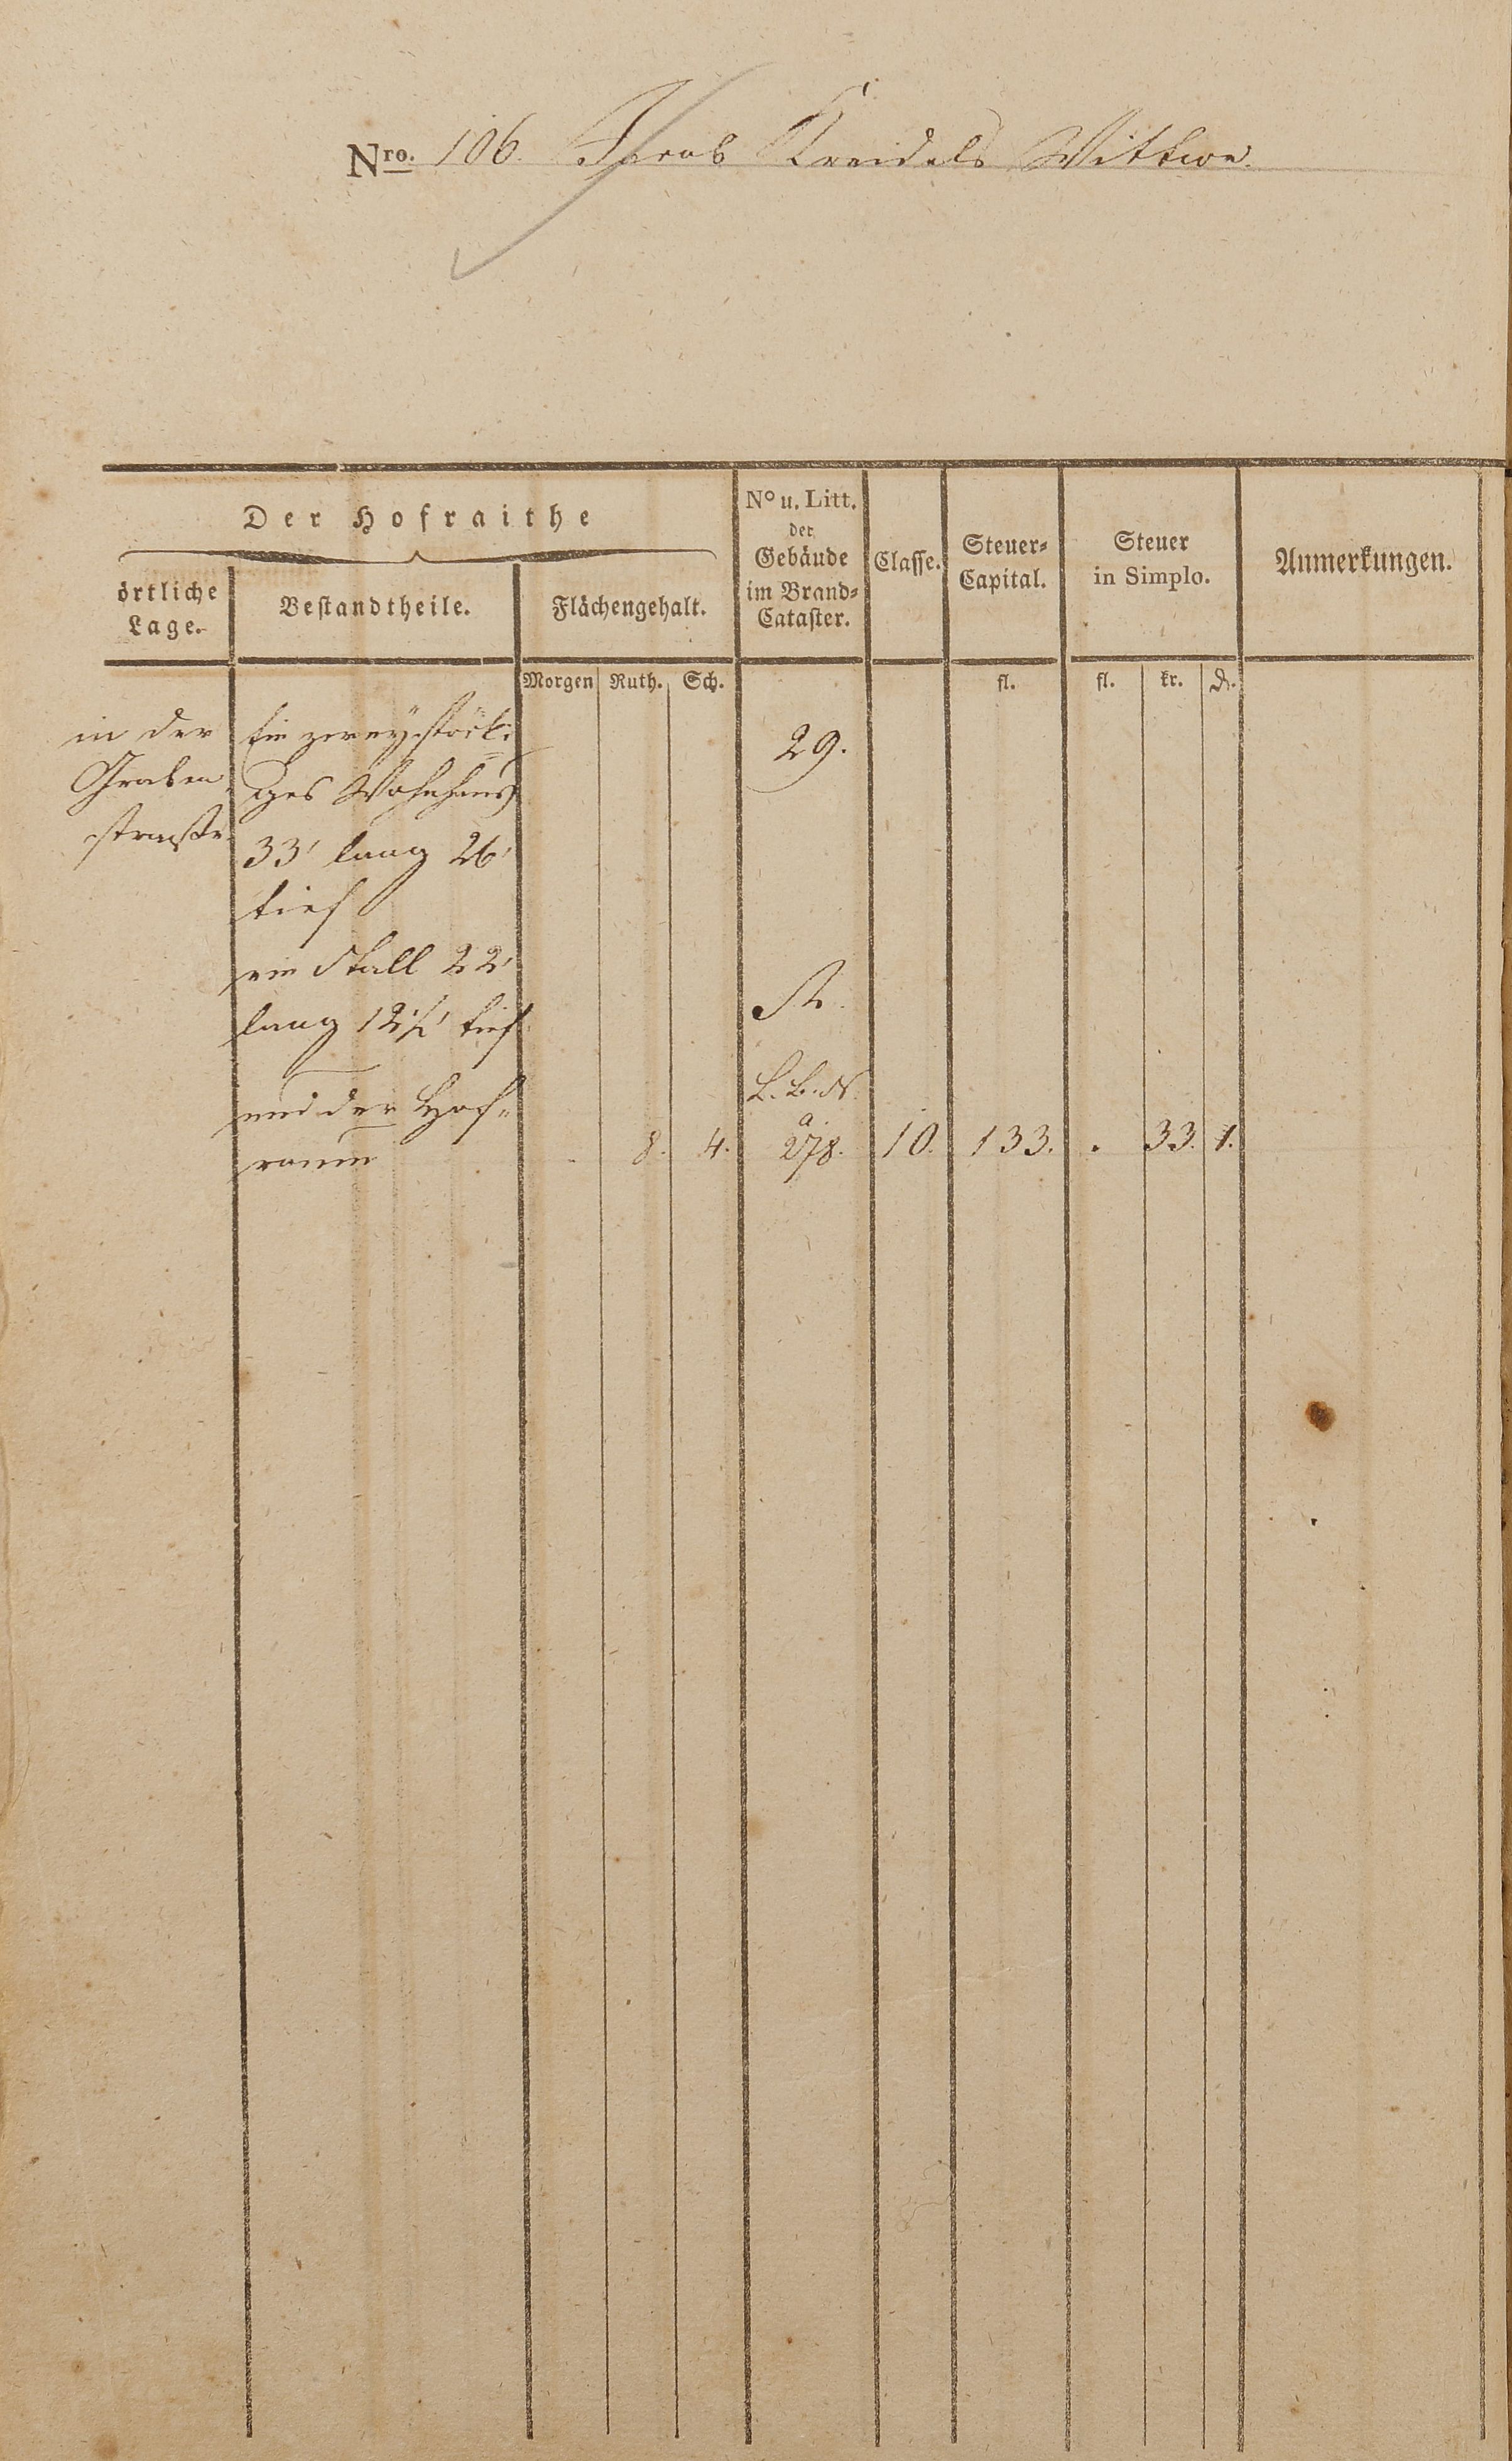 Nro. 106. Jacob Kreidels Wittwe.
Der Hofraithe
örtliche
Lage.
Bestandtheile.
Flächengehalt.
No u. Litt.
der
Gebäude
im Brand-
Cataster.
Classe.
Steuer-
Capital.
Steuer
in Simplo.
Anmerkungen.
Morgen Ruth. Sch. fl. fl. kr. d.
in der
Graben
straße
Ein zweystöcki
ges Wohnhaus
33' lang 26'
tief
29.
ein Stall 22'
lang 12½' tief
und der Hof-
raum
8. 4. 278. 10. 133. . 33. 1.